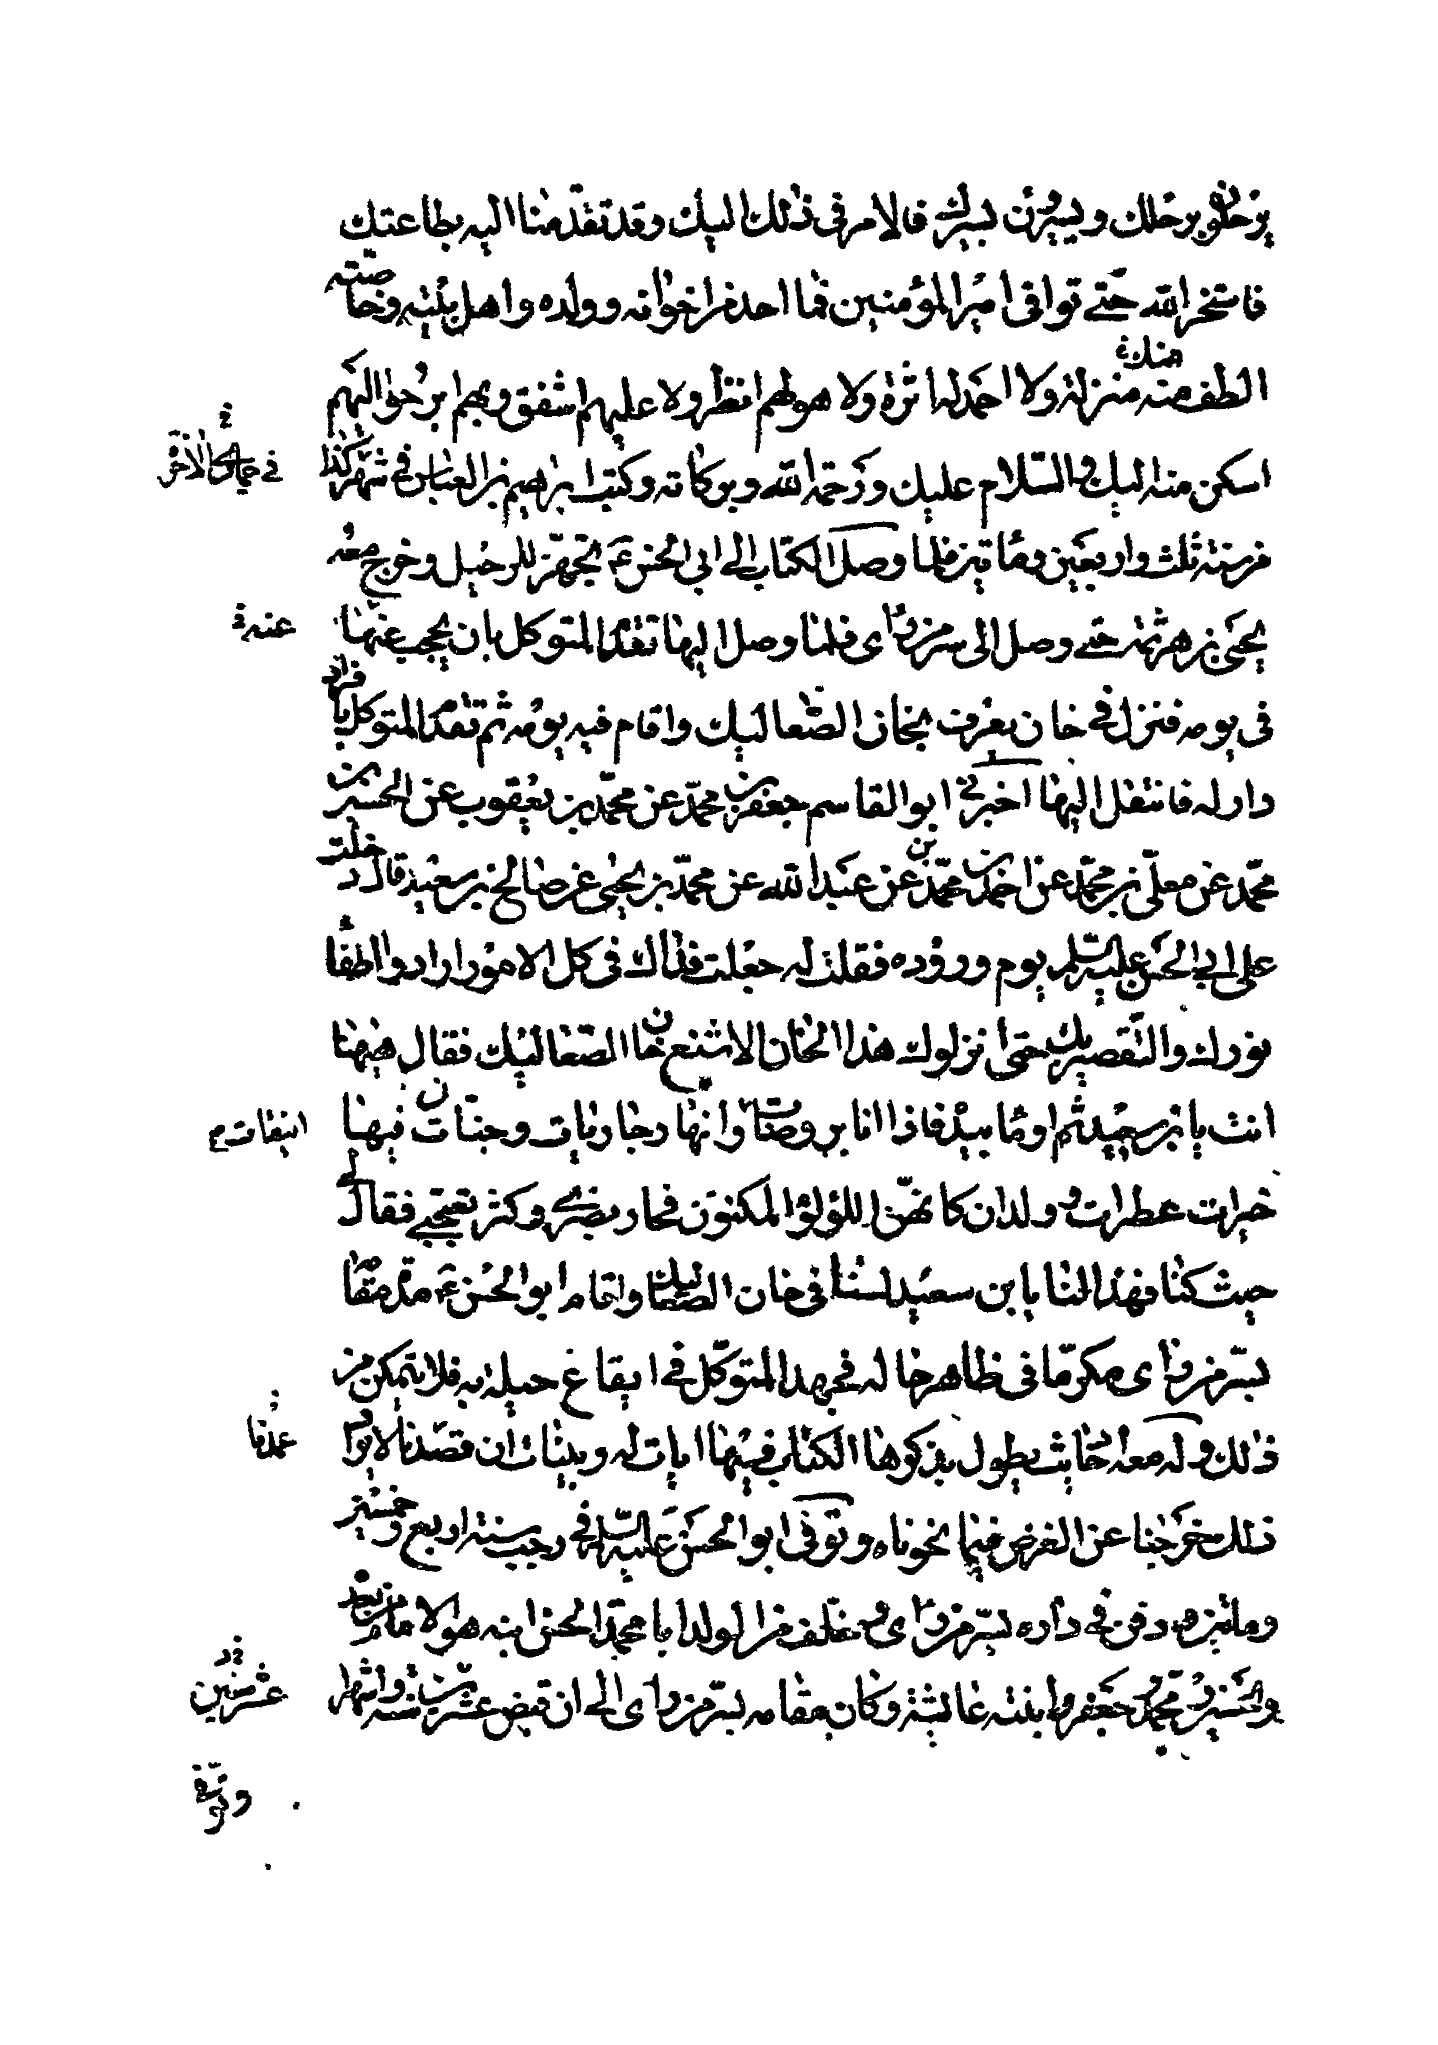 يرحلون برحلك ويسيرون بسيرك فالامر فى ذلك اليك وقد تقدمنا اليه بطاعتك
فاستخر الله حتى توافى امير المؤمنين فما احد من اخوانه وولده واهل بيته وخاصته
الطف منه منزلة ولا احمد له اثرة ولا هو لهم انظر ولا عليهم اشفق وبهم ابر هو اليهم
اسكن منه اليك والسلام عليك ورحمة الله وبركاته وكتب ابرهيم بن العباس فى شهر كذا
فى جمادى الاخرى
من سنة ثلث واربعين ومائتين فلما وصل الكتاب الى ابى الحسن ع تجهز للرحيل وخرج معه
يحيى بن هرثمة حتى وصل الى سر من راى فلما وصل اليها تقدم المتوكل بان يحجب عنها
عنه
فى يومه فنزل فى خان يعرف بخان الصعاليك واقام فيه يومه ثم تقدم المتوكل بافراد
دار له فانتقل اليها اخبرنى ابو القاسم جعفر بن محمد عن محمد بن يعقوب عن الحسين بن
محمد عن معلى بن محمد عن احمد بن محمد بن عبد الله عن محمد بن يحيى عن صالح بن سعيد قال دخلت
على ابى الحسن عليه السلم يوم وروده فقلت له جعلت فداك فى كل الامور ارادوا اطفاء
نورك والتقصير بك حتى انزلوك هذا الخان الاشنع خان الصعاليك فقال ههنا
انت يا بن سعيد ثم اومأ بيده فاذا انا بروضات وانهار جاريات وجنات فيها
انيقات م
خيرات عطرات وولدان كانهن اللؤلؤ المكنون فحار بصرى وكثر تعجبى فقال لى
حيث كنا فهذا لنا يا بن سعيد لسنا فى خان الصعاليك واقام ابو الحسن ع مدة مقامه
بسر من راى مكرما فى ظاهر حاله فجهد المتوكل فى ايقاع حيلة به فلا يتمكن من
ذلك وله معه احاديث يطول بذكرها الكتاب فيها ايات له وبينات ان قصدنا لايراد
عمدنا
ذلك خرجنا عن الغرض فيما نحوناه وتوفى ابو الحسن عليه السلم فى رجب سنة اربع وخمسين
ومائتين ودفن فى داره بسر من راى وخلف من الولد ابا محمد الحسن ابنه هو الامام من بعده
والحسين ومحمد وجعفر وابنته عائشة وكان مقامه بسر من راى الى ان قبض عشر سنين واشهرا
عشر سنين
وتوفى